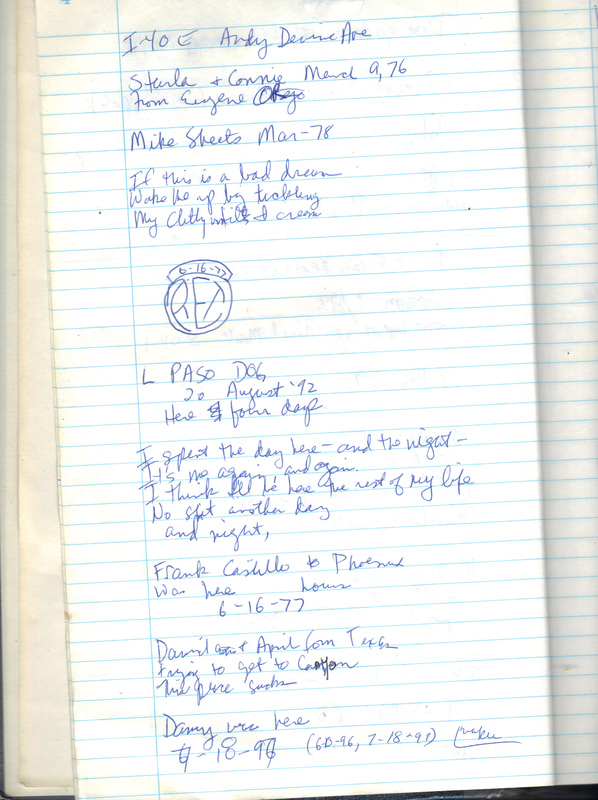 I-40 E Andy Devine Ave
Starla + Connie March 9, 76
from Eugene
Mike Sheets Mar-78
If this is a bad dream
Wake me up by tickling
My Clitty while I cream
6-16-77
REZ
L PASO DOG
20 August '92
Here 4 four days
I spent the day here - and the night -
It's me again, and again.
I think I'll be here the rest of my life
No shit another day
and night,
Frank Castillo to Phoenix
was here hours
6-16-77
David + April from Texas
trying to get to Canyon
This place sucks
Danny was here
-18-97 (60-96, 7-18-91)